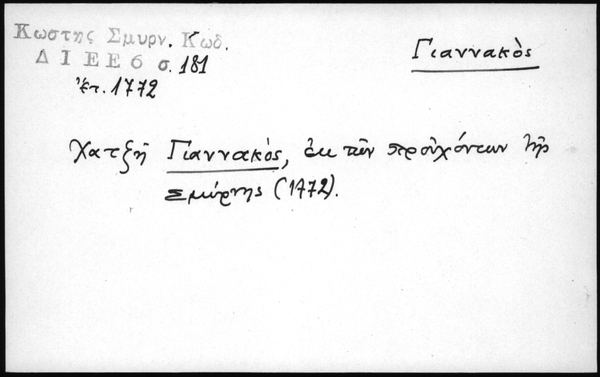 Κωστης Σμυρν. Κωδ.
Δ Ι Ε Ε 6 σ. 181
Ἔτ. 1772
Γιαννακὸς
Χατζῆ Γιαννακὸς, ἐκ τῶν προὐχόντων τῆς
Σμύρνης (1772).